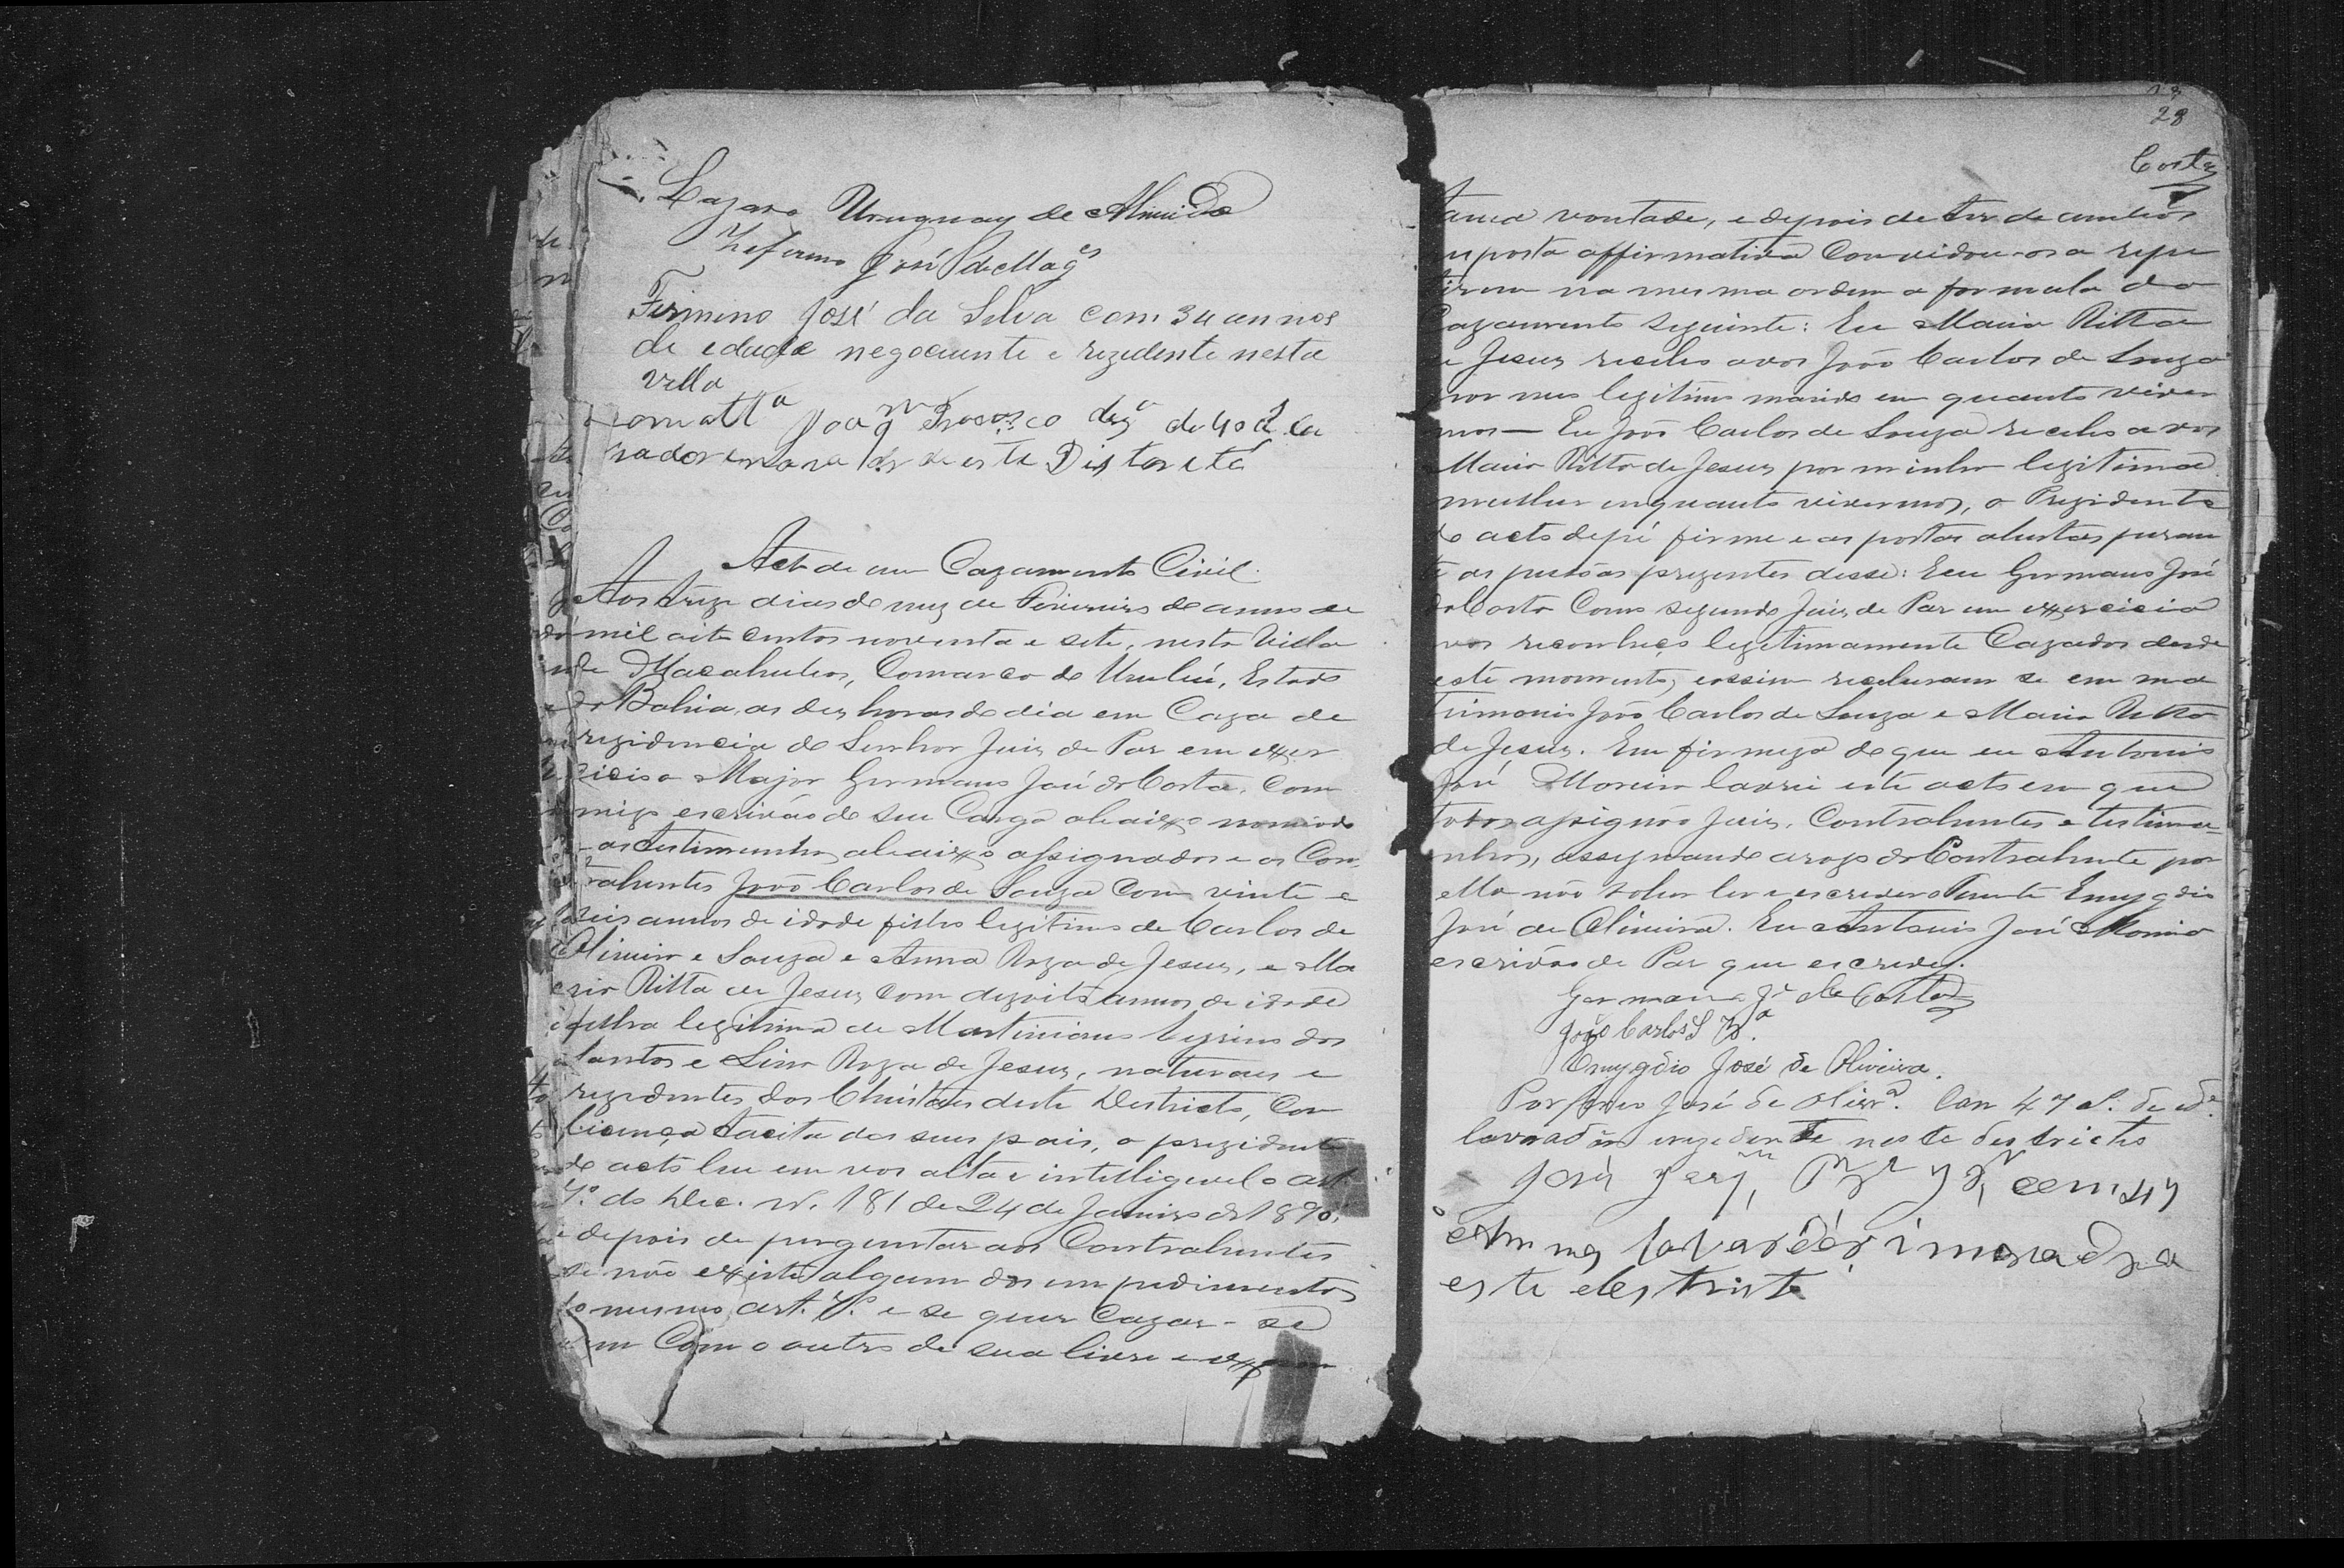 Lazaro Uruguay de Almeida
Zeferino José de Mag.es
Firmino José da Silva com 34 annos
de edade negociante e rezidente nesta
Villa
de 40
rador morador deste Distreto
Acto de um Cazamento Civil.
Aos treze dias do mez de Fevereiro do anno de
mil oito centos noventa e sete, nesta Villa
de Macahubas, Comarca de Urubú, Estado
da Bahia, as dez horas do dia em Caza de
rezidencia do Senhor Juiz de Paz em exer
cicio o Major Germano José da Costa, Com
migo escrivão de seu Cargo abaixo nomiado
as testimunhas abaixo assignados e os Con
trahentes João Carlos de Souza Com vinte e
seis annos de idade filho legitimo de Carlos de
Oliveira e Souza e Anna Roza de Jesus, e Ma
ria Ritta de Jesus com dezoito annos de idade
filha legitima de Martiniano Cyrino dos
Santos e Lina Roza de Jesus, naturaes e
rezidentes dos Christaes deste Destricto, Com
licença tacita dos seus pais, o prezidente
do acto leu em vos alta e intelligivel o art.
7.º do Dec. N. 181 de 24 de Janeiro de 1890,
e depois de perguntar aos Contrahentes
se não existe algum dos impedimentos
do mesmo art. 7.º e se quer Cazar-se
um Com o outro de sua livre e expon
28
Costa
tania vontade, e depois de ter de ambos
resposta affirmativa Convidou-os a repe
tirem na mesma ordem a formula do
Cazamento seguinte: Eu Maria Ritta
de Jesus recebo a vos João Carlos de Souza
por meu legitimo marido em quanto viver
mos — Eu João Carlos de Souza recebo a vos
Maria Ritta de Jesus por minha legitima
mulher enquanto vivermos, o Prezidente
do acto de pé firme e as portas abertas peran
te as pessoas prezentes disse: Eu Germano José
da Costa Como segundo Juiz de Paz em exercicio
vos reconheço legitimamente Cazados desde
este momento, e assim receberam se em ma
trimonio João Carlos de Souza e Maria Ritta
de Jesus. Em firmeza do que eu Antonio
José Moreira lavrei este acto em que
todos assignão Juiz, Contrahentes e testimu
nhas, assignando a rogo da Contrahente por
ella não saber ler e escrever o Tenente Emygdio
José de Oliveira. Eu Antonio José Moreira
escrivão de Paz que escrevy.
Germano J.e da Costa
João Carlos S Z.a
Emygdio José de Oliveira.
José de Olivr.a Com 47 a. de id.e
lavrador e rezidente neste destricto
José com 47
annos lavrador i morador
este destrito